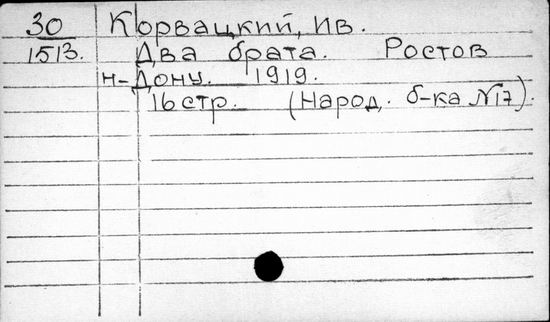 30 Корвацкий, Ив.
1513. Два брата. Ростов
н-Дону. 1919.
16 стр. (Народ. б-ка №17).